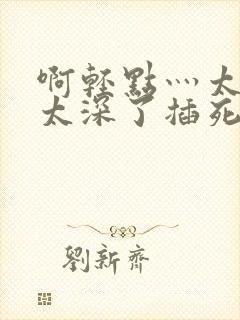 啊輕點灬太
太深了插死
劉新齊